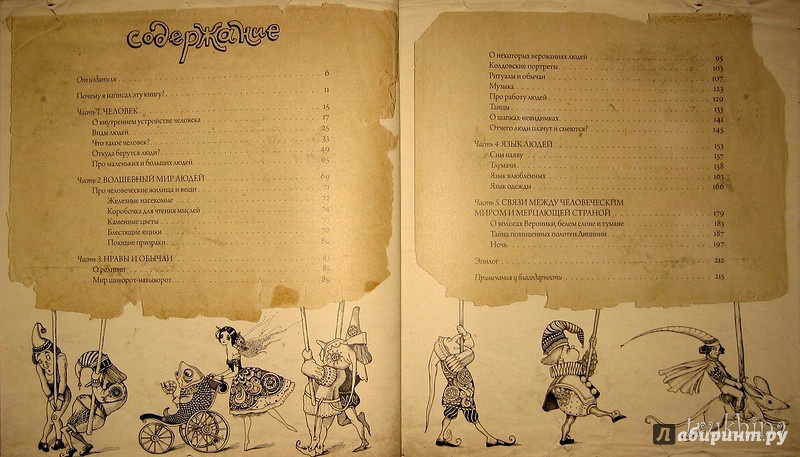 содержание
От издателя 6
Почему я написал эту книгу? 11
Часть 1. ЧЕЛОВЕК 15
О внутреннем устройстве человека 17
Виды людей 25
Что такое человек? 33
Откуда берутся люди? 49
Про маленьких и больших людей 65
Часть 2. ВОЛШЕБНЫЙ МИР ЛЮДЕЙ 69
Про человеческие жилища и вещи 71
Железные насекомые 72
Коробочка для чтения мыслей 74
Каменные цветы
Блестящие ящики 78
Поющие призраки 80
Часть 3. НРАВЫ И ОБЫЧАИ 83
О религии 85
Мир шиворот-навыворот 89
О некоторых верованиях людей 95
Колдовские портреты 103
Ритуалы и обычаи 107
Музыка 123
Про работу людей 129
Танцы 133
О шапках-невидимках 141
Отчего люди плачут и смеются? 145
Часть 4. ЯЗЫК ЛЮДЕЙ 153
Сны наяву 157
Тлумачи 158
Язык влюблённых 163
Язык одежды 166
Часть 5. СВЯЗИ МЕЖДУ ЧЕЛОВЕЧЕСКИМ
МИРОМ И МЕРЦАЮЩЕЙ СТРАНОЙ 179
О волосах Вероники, белом слоне и тумане 183
Тайна похищенных полотен Лицинии 187
Ночь 197
Эпилог 212
Примечания и благодарности 215
Лабиринт.ру